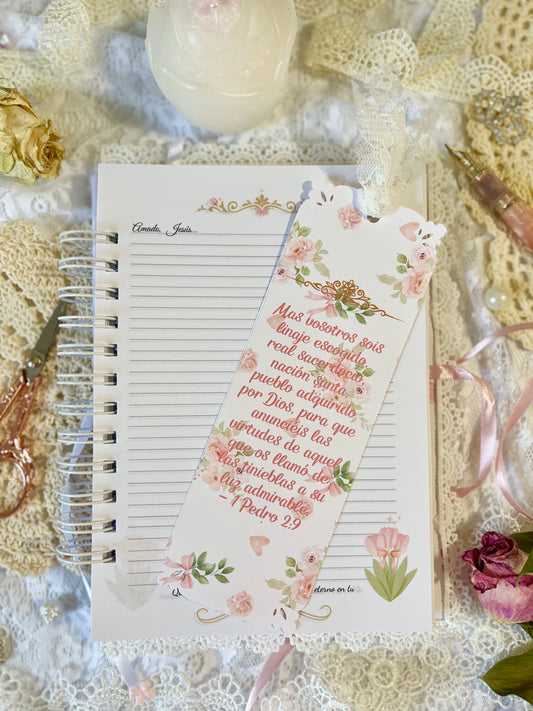 Amado, Jesús...
Mas vosotros sois
linaje escogido,
real sacerdocio,
nación santa,
pueblo adquirido
por Dios, para que
anunciéis las
virtudes de aquel
que os llamó de
las tinieblas a su
luz admirable.
– 1 Pedro 2:9
eterno en tu